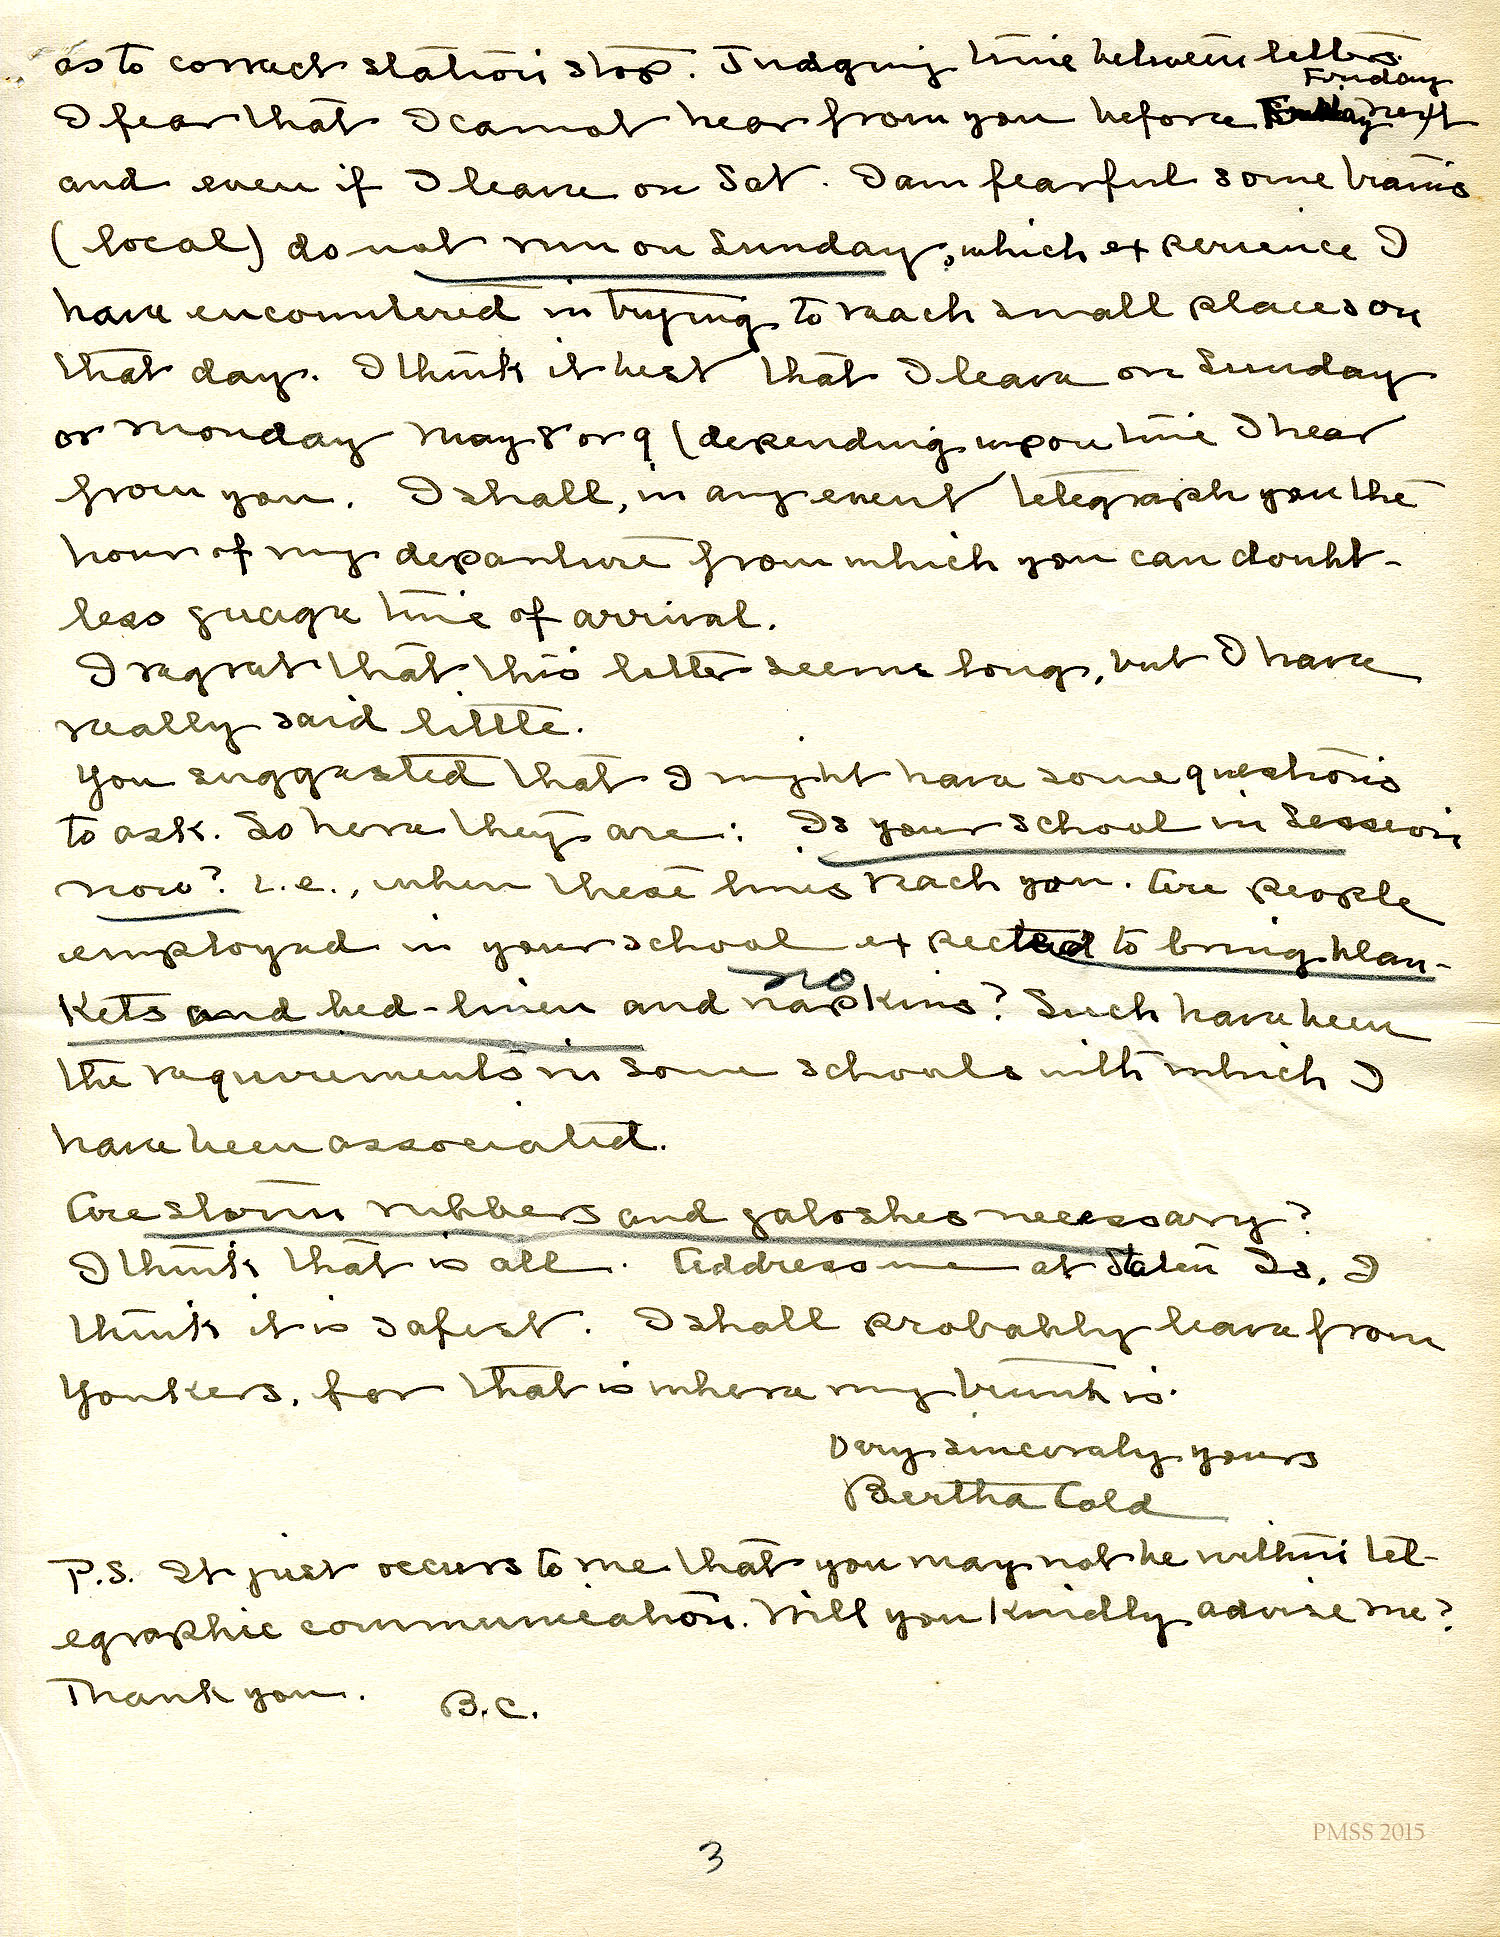 as to correct station stop. Judging time between letters
Friday
I fear that I cannot hear from you before next
and even if I leave on Sat. I am fearful some trains
(local) do not run on Sunday, which experience I
have encountered in trying to reach small places on
that day. I think it best that I leave on Sunday
or Monday May 8 or 9 (depending upon time I hear
from you. I shall, in any event telegraph you the
hour of my departure from which you can doubt-
less guage time of arrival.
I regret that this letter seems long, but I have
really said little.
You suggested that I might have some questions
to ask. So here they are: Is your school in session
now? i.e., when these lines reach you. Are people
employed in your school expected to bring blan-
no
kets and bed-linen and napkins? Such have been
the requirements in some schools with which I
have been associated.
Are storm rubbers and galoshes necessary?
I think that is all. Address me at Staten Is, I
think it is safest. I shall probably leave from
Yonkers, for that is where my trunk is.
Very sincerely yours
Bertha Cold
P.S. It just occurs to me that you may not be within tel-
egraphic communication. Will you kindly advise me?
Thank you. B.C.
3
PMSS 2015